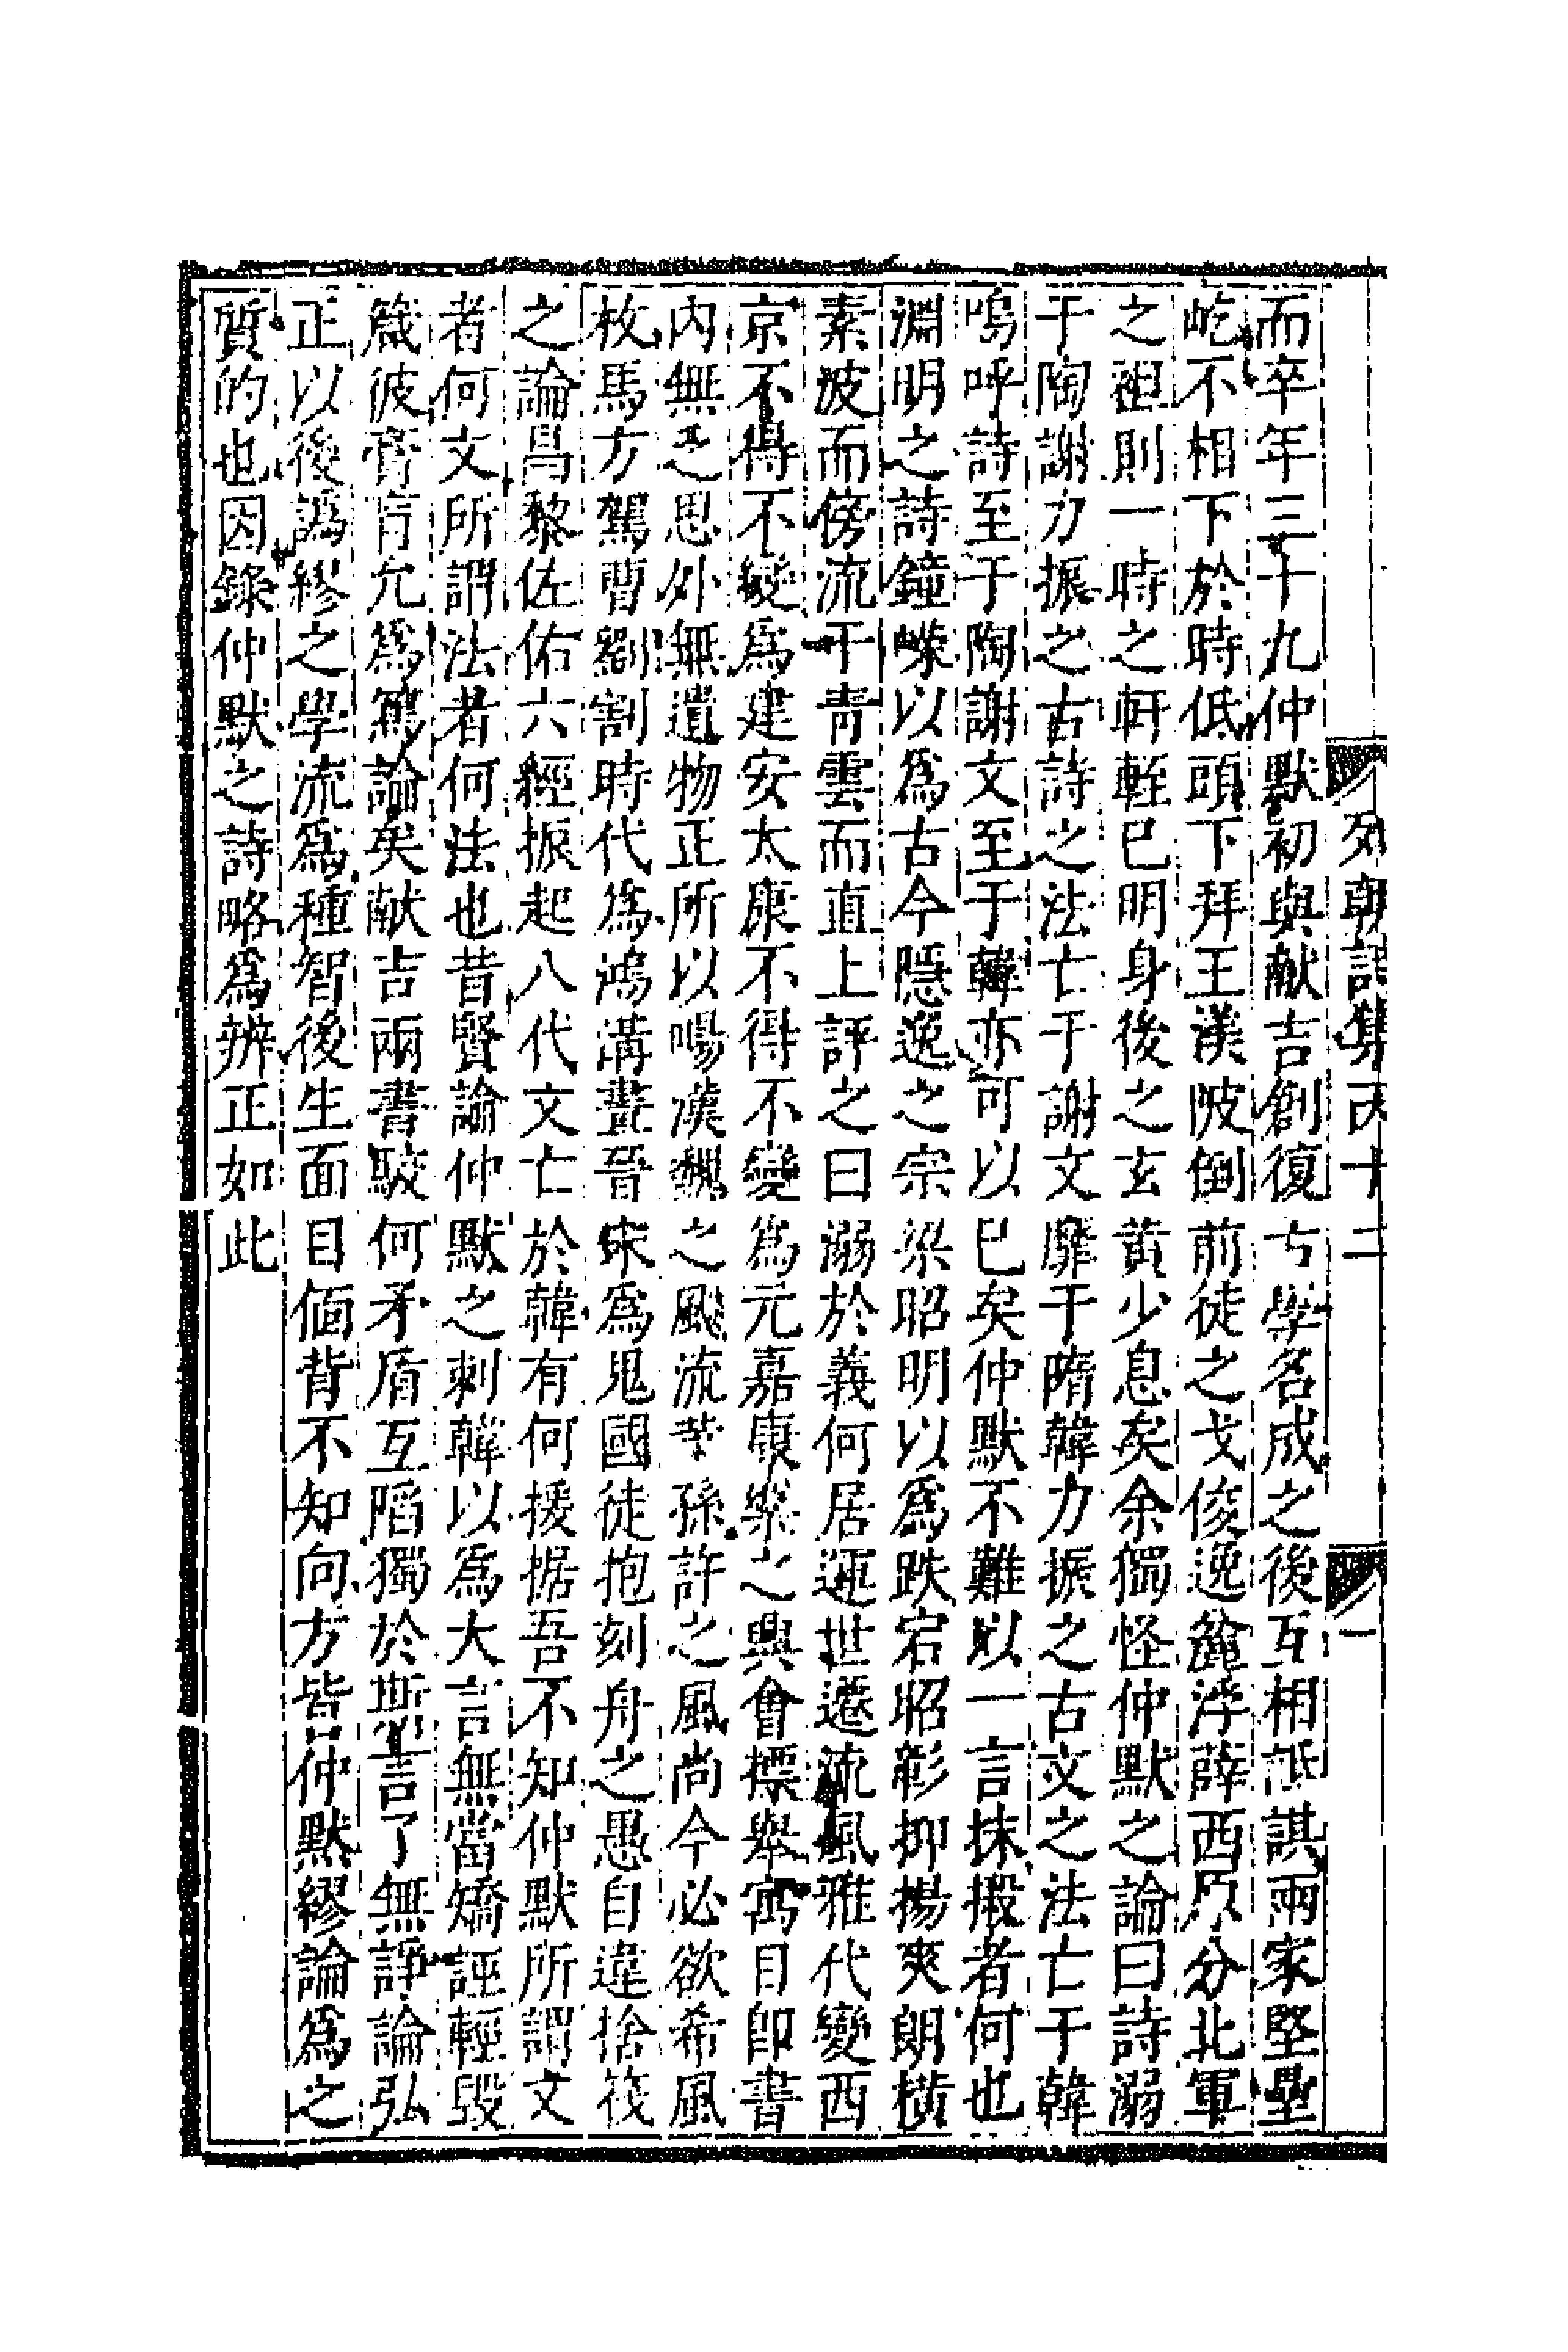 列朝詩集丙十二 一
而卒年三十九仲默初與献吉創復古學名成之後互相詆諆兩家堅壘
屹不相下於時低頭下拜王渼陂倒前徒之戈俊逸麄浮薛西原分北軍
之袒則一時之軒輊巳明身後之玄黃少息矣余獨怪仲默之論曰詩溺
于陶謝力振之古詩之法亡于謝文靡于隋韓力振之古文之法亡于韓
嗚呼詩至于陶謝文至于韓亦可以巳矣仲默不難以一言抹摋者何也
淵明之詩鐘嶸以為古今隱逸之宗梁昭明以為跌宕昭彰抑揚爽朗橫
素波而傍流干青雲而直上評之曰溺於義何居運世遷流風雅代變西
京不得不變為建安太康不得不變為元嘉康樂之興會摽舉寓目即書
內無乏思外無遺物正所以暢漢魏之颷流革孫許之風尚今必欲希風
枚馬方駕曹劉割時代為鴻溝畫晉宋為鬼國徒抱刻舟之愚自違捨筏
之論昌黎佐佑六經振起八代文亡於韓有何援据吾不知仲默所謂文
者何文所謂法者何法也昔賢論仲默之刺韓以為大言無當矯誣輕毀
箴彼膏肓允為篤論矣献吉兩書駁何矛盾互陷獨於斯言了無諍論弘
正以後譌繆之學流為種智後生面目偭背不知向方皆仲默繆論為之
質的也因錄仲默之詩略為辨正如此